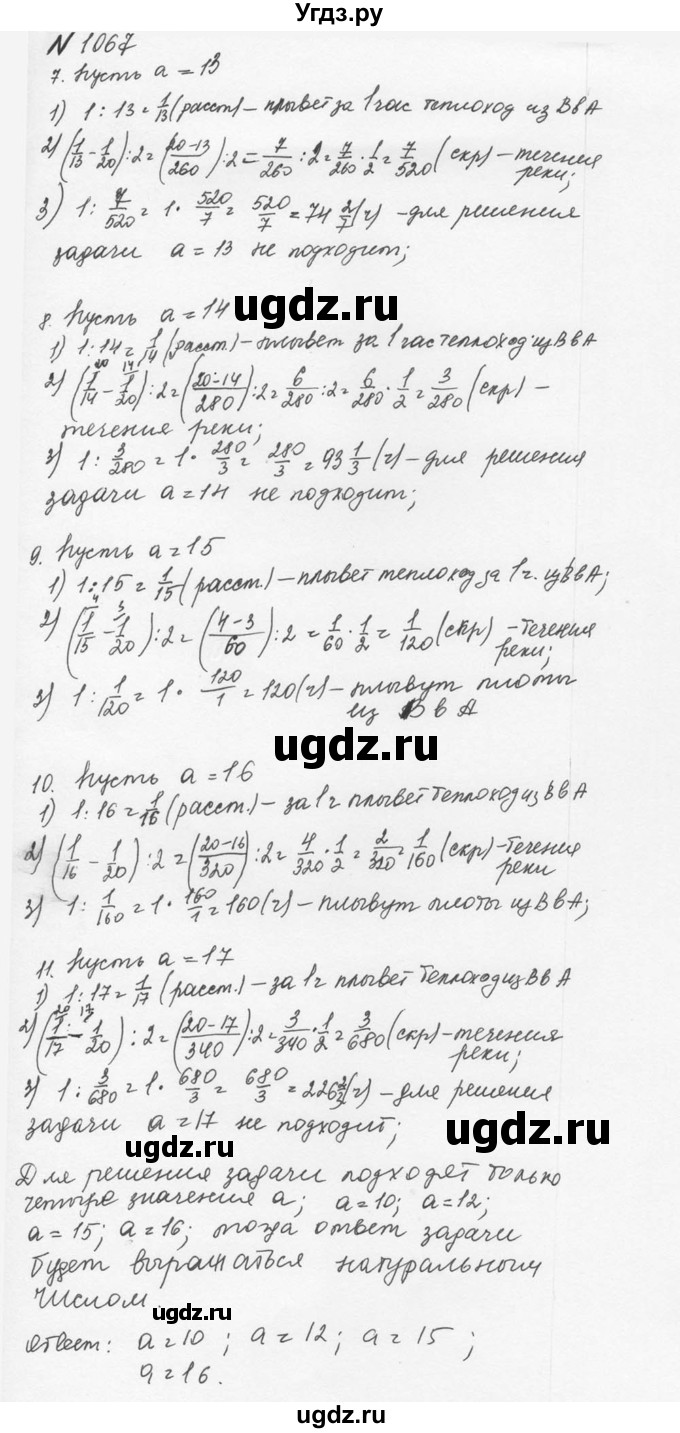 Угдз.ру
N 1067
7. Пусть a = 13
1) 1 : 13 = 1/13 (расст) – плывет за 1 час теплоход из В в А
2) (1/13 - 1/20) : 2 = (20-13/260) : 2 = 7/260 : 2 = 7/260 · 1/2 = 7/520 (скр) – течения
реки;
3) 1 : 7/520 = 1 · 520/7 = 520/7 = 74 2/7 (ч) – для решения
задачи a = 13 не подходит;
8. Пусть a = 14
ugdz.ru
1) 1 : 14 = 1/14 (расст) – плывет за 1 час теплоход из В в А
2) (1/14 - 1/20) : 2 = (20-14/280) : 2 = 6/280 : 2 = 6/280 · 1/2 = 3/280 (скр) –
течения реки;
3) 1 : 3/280 = 1 · 280/3 = 280/3 = 93 1/3 (ч) – для решения
задачи a = 14 не подходит;
9. Пусть a = 15
1) 1 : 15 = 1/15 (расст.) – плывет теплоход за 1 ч. из В в А;
2) (1/15 - 1/20) : 2 = (4-3/60) : 2 = 1/60 · 1/2 = 1/120 (скр) – течения
реки;
3) 1 : 1/120 = 1 · 120/1 = 120 (ч) – плывут плоты
из В в А
ugdz.ru
10. Пусть a = 16
1) 1 : 16 = 1/16 (расст.) – за 1 ч плывет теплоход из В в А
2) (1/16 - 1/20) : 2 = (20-16/320) : 2 = 4/320 · 1/2 = 2/320 = 1/160 (скр) – течения
реки
3) 1 : 1/160 = 1 · 160/1 = 160 (ч) – плывут плоты из В в А;
11. Пусть a = 17
1) 1 : 17 = 1/17 (расст.) – за 1 ч плывет теплоход из В в А
2) (1/17 - 1/20) : 2 = (20-17/340) : 2 = 3/340 · 1/2 = 3/680 (скр) – течения
реки;
3) 1 : 3/680 = 1 · 680/3 = 680/3 = 226 2/3 (ч) – для решения
задачи a = 17 не подходит;
ugdz.ru
Для решения задачи подходят только
четыре значения a; a = 10; a = 12;
a = 15; a = 16; тогда ответ задачи
будет выражаться натуральным
числом.
ugdz.ru
Ответ: a = 10; a = 12; a = 15;
a = 16.
ugdz.ru